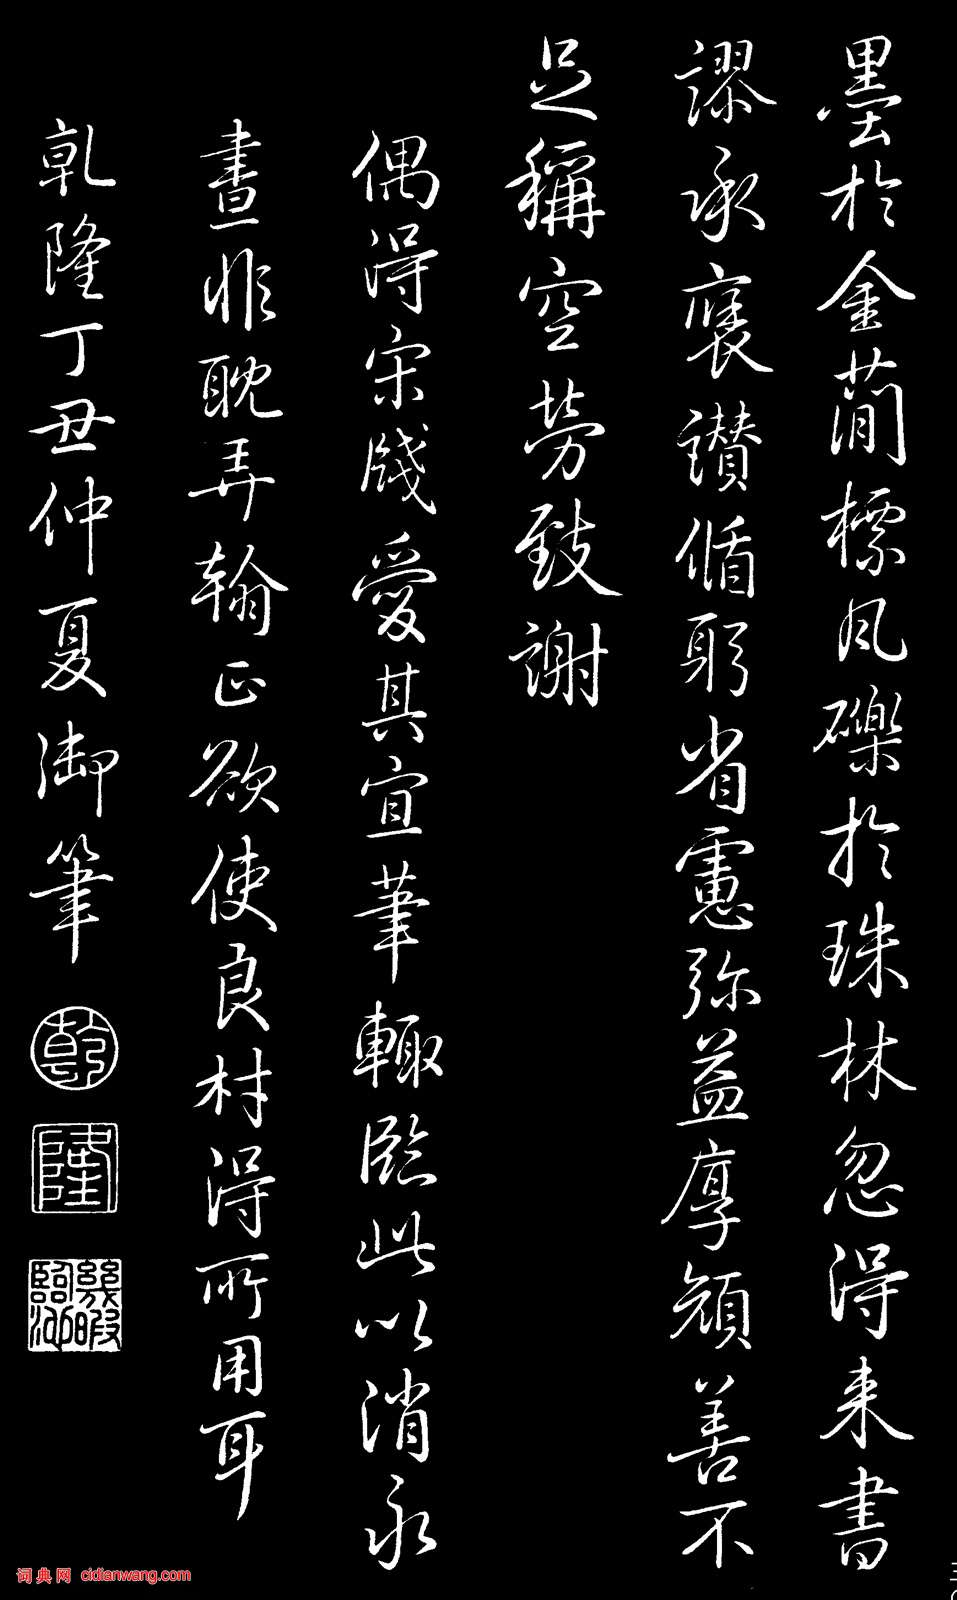 墨於金蕳標風礫於珠林忽得来書
謬承褒讃循躬省慮弥益厚顔善不
足稱空勞致謝
偶得宋牋愛其宜筆輙臨此以消永
晝非耽弄翰正欲使良材得所用耳
乾隆丁丑仲夏御筆
乾
隆
幾暇臨池
词典网 cidianwang.com